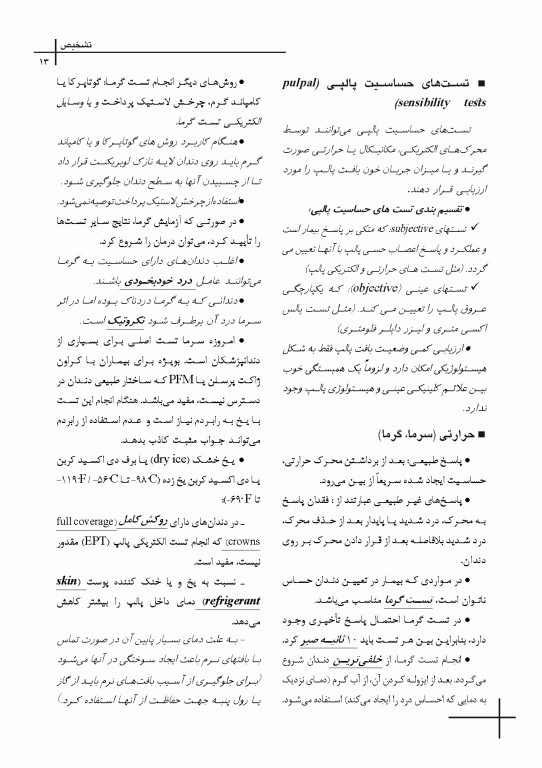 تشخیص
۱۳
■ تست‌های حساسیت پالپی (pulpal
sensibility tests)
تست‌های حساسیت پالپی می‌توانند توسط
محرک‌های الکتریکی، مکانیکال یا حرارتی صورت
گیرند و یا میزان جریان خون بافت پالپ را مورد
ارزیابی قرار دهند.
● تقسیم بندی تست های حساسیت پالپی:
✓ تستهای subjective: که متکی بر پاسخ بیمار است
و عملکرد و پاسخ اعصاب حسی پالپ با آنها تعیین می
گردد. (مثل تست های حرارتی و الکتریکی پالپ)
✓ تستهای عینی (objective): که یکپارچگی
عروق پالپ را تعیین می کند. (مثل تست پالس
اکسی متری و لیزر داپلر فلومتری)
● ارزیابی کمی وضعیت بافت پالپ فقط به شکل
هیستولوژیکی امکان دارد و لزوماً یک همبستگی خوب
بین علائم کلینیکی عینی و هیستولوژی پالپ وجود
ندارد.
■ حرارتی (سرما، گرما)
● پاسخ طبیعی: بعد از برداشتن محرک حرارتی،
حساسیت ایجاد شده سریعاً از بین می‌رود.
● پاسخ‌های غیر طبیعی عبارتند از : فقدان پاسخ
به محرک، درد شدید یا پایدار بعد از حذف محرک،
درد شدید بلافاصله بعد از قرار دادن محرک بر روی
دندان.
● در مواردی که بیمار در تعیین دندان حساس
ناتوان است، تست گرما مناسب می‌باشد.
● در تست گرما احتمال پاسخ تأخیری وجود
دارد، بنابراین بین هر تست باید ۱۰ ثانیه صبر کرد.
● انجام تست گرما، از خلفی‌ترین دندان شروع
می‌گردد. بعد از ایزوله کردن آن، از آب گرم (دمای نزدیک
به دمایی که احساس درد را ایجاد می‌کند) استفاده می‌شود.
● روش‌های دیگر انجام تست گرما: گوتاپرکا یا
کامپاند گرم، چرخش لاستیک پرداخت و یا وسایل
الکتریکی تست گرما.
● هنگام کاربرد روش های گوتاپرکا و یا کامپاند
گرم باید روی دندان لایه نازک لوبریکنت قرار داد
تا از چسبیدن آنها به سطح دندان جلوگیری شود.
● استفاده از چرخش لاستیک پرداخت توصیه نمی‌شود.
● در صورتی که آزمایش گرما، نتایج سایر تست‌ها
را تأیید کرد، می‌توان درمان را شروع کرد.
● اغلب دندان‌های دارای حساسیت به گرما
می‌توانند عامل درد خودبخودی باشند.
● دندانی که به گرما دردناک بوده اما در اثر
سرما درد آن برطرف شود نکروتیک است.
● امروزه سرما تست اصلی برای بسیاری از
دندانپزشکان است. بویژه برای بیماران با کراون
ژاکت پرسلن یا PFM که ساختار طبیعی دندان در
دسترس نیست، مفید می‌باشد. هنگام انجام این تست
با یخ به رابردم نیاز است و عدم استفاده از رابردم
می‌تواند جواب مثبت کاذب بدهد.
● یخ خشک (dry ice) یا برف دی اکسید کربن
یا دی اکسید کربن یخ زده (۹۸°C- تا ۵۶°C- / ۱۱۹°F-
تا ۶۹°F-):
ـ در دندان‌های دارای روکش کامل (full coverage
crowns) که انجام تست الکتریکی پالپ (EPT) مقدور
نیست، مفید است.
ـ نسبت به یخ و یا خنک کننده پوست (skin
refrigerant) دمای داخل پالپ را بیشتر کاهش
می‌دهد.
ـ به علت دمای بسیار پایین آن در صورت تماس
با بافتهای نرم باعث ایجاد سوختگی در آنها می‌شود
(برای جلوگیری از آسیب بافت‌های نرم باید از گاز
یا رول پنبه جهت حفاظت از آنها استفاده کرد.)